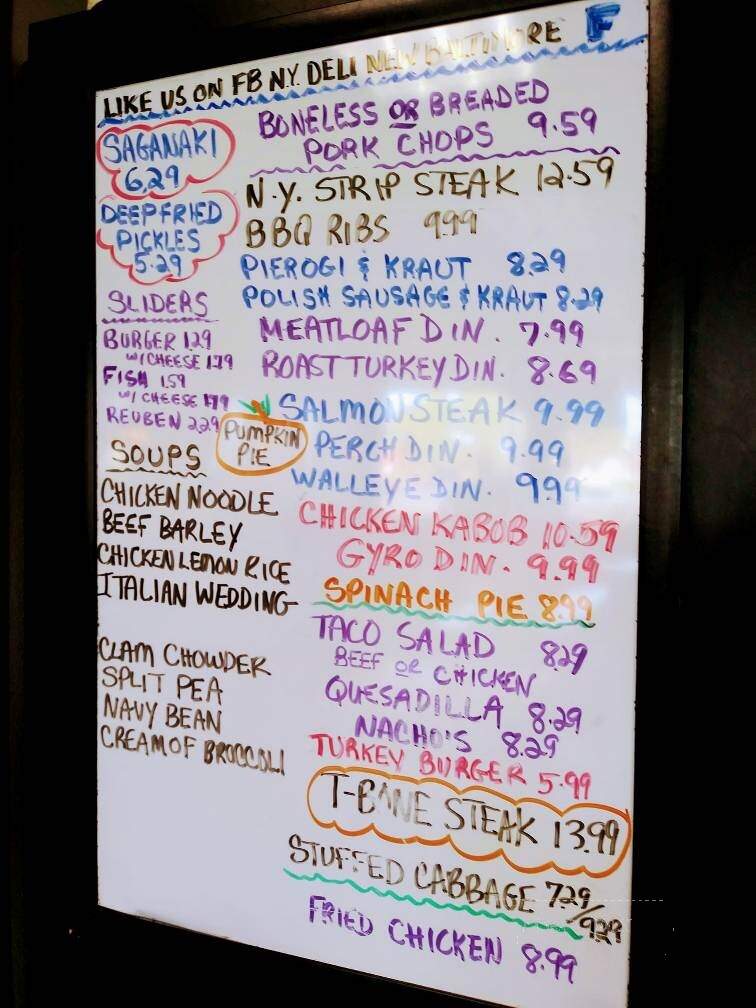 LIKE US ON FB N.Y. DELI NEW BALTIMORE F
SAGANAKI
6.29
DEEP FRIED
PICKLES
5.29
SLIDERS
BURGER 1.29
W/ CHEESE 1.79
FISH 1.59
W/ CHEESE 1.79
REUBEN 2.29
PUMPKIN
PIE
SOUPS
CHICKEN NOODLE
BEEF BARLEY
CHICKEN LEMON RICE
ITALIAN WEDDING
CLAM CHOWDER
SPLIT PEA
NAVY BEAN
CREAM OF BROCCOLI
BONELESS OR BREADED
PORK CHOPS 9.59
N.Y. STRIP STEAK 12.59
BBQ RIBS 9.99
PIEROGI & KRAUT 8.29
POLISH SAUSAGE & KRAUT 8.29
MEATLOAF DIN. 7.99
ROAST TURKEY DIN. 8.69
SALMON STEAK 9.99
PERCH DIN. 9.99
WALLEYE DIN. 9.99
CHICKEN KABOB 10.59
GYRO DIN. 9.99
SPINACH PIE 8.99
TACO SALAD 8.29
BEEF OR CHICKEN
QUESADILLA 8.29
NACHO'S 8.29
TURKEY BURGER 5.99
T-BONE STEAK 13.99
STUFFED CABBAGE 7.29/9.29
FRIED CHICKEN 8.99